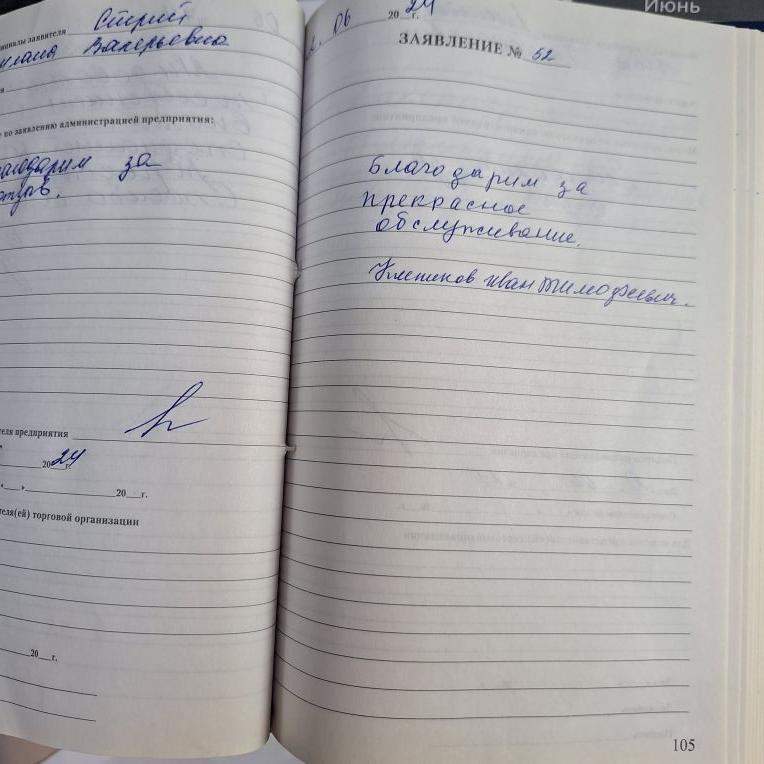 Июнь
заявителя
Валерьевна
е по заявлению администрацией предприятия:
за
отзыв.
теля предприятия
2024г.
«__»__________20__г.
теля(ей) торговой организации
20__г.
06 2024 г.
ЗАЯВЛЕНИЕ № 52
Благодарим за
прекрасное
обслуживание.
Иван Тимофеевич.
105